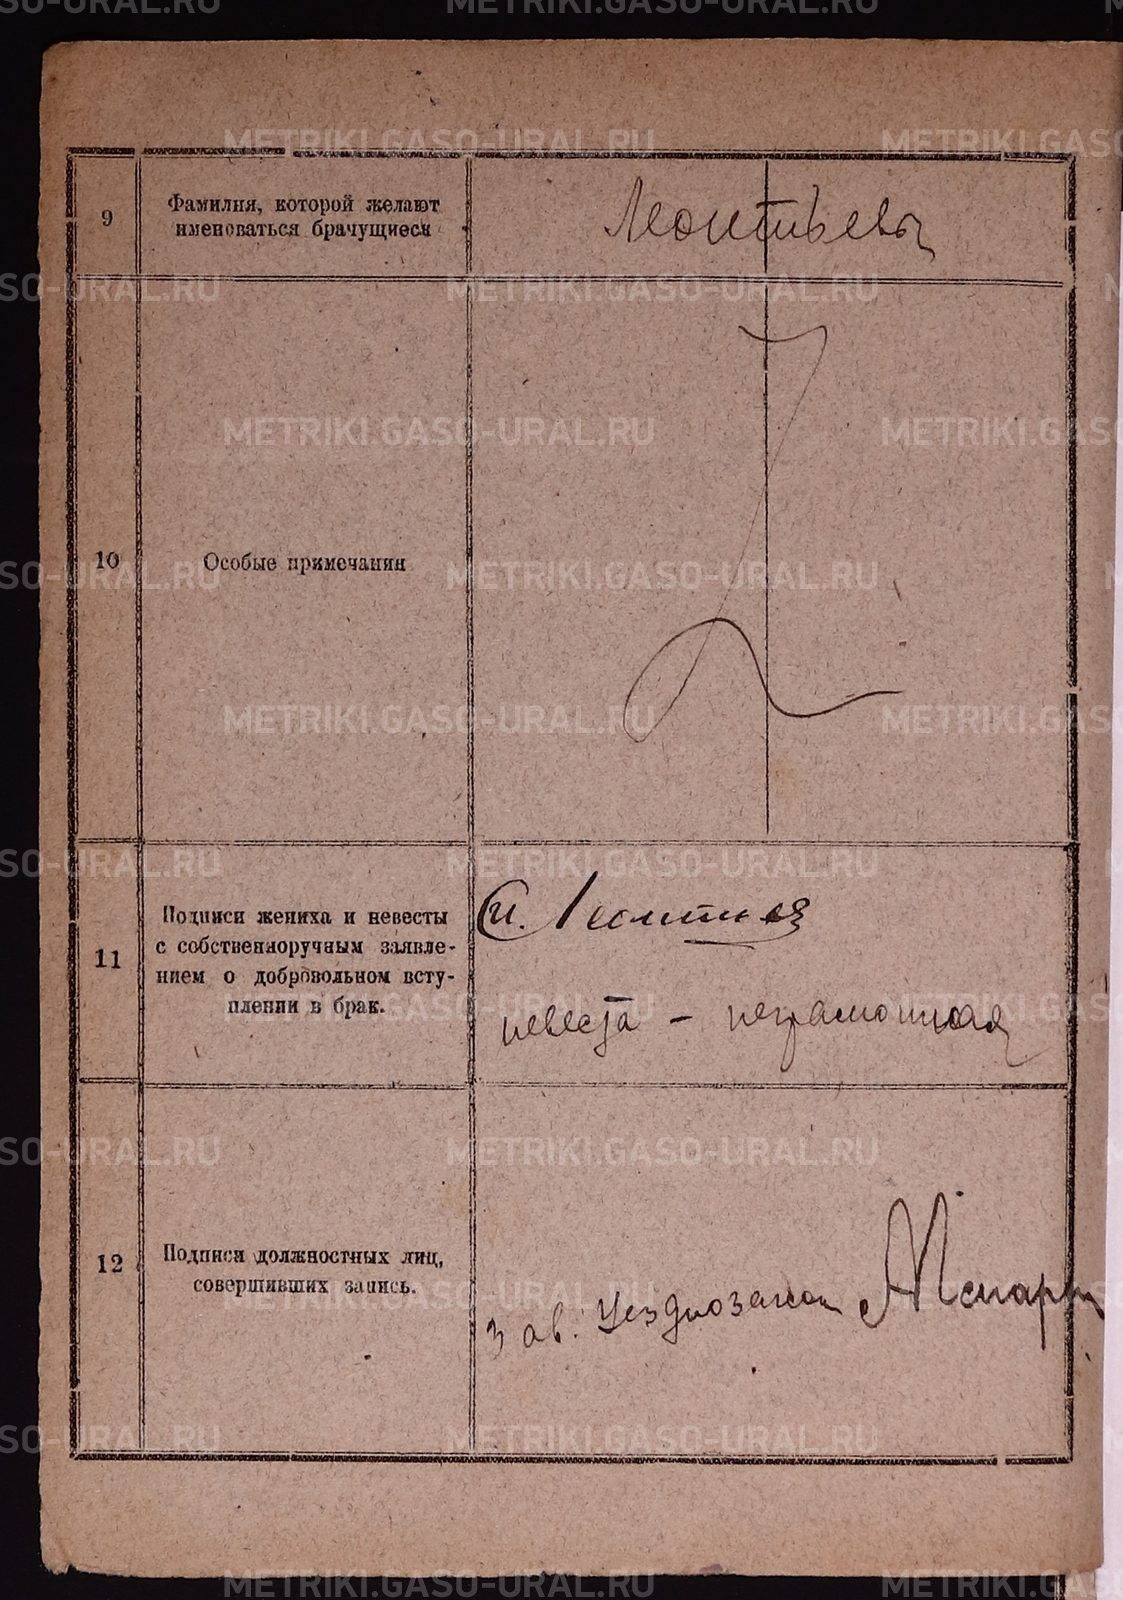 METRIKI.GASO-URAL.RU
9
Фамилия, которой желают
именоваться брачущиеся
Леонтьевы
10
Особые примечания
11
Подписи жениха и невесты
с собственноручным заявле-
нием о добровольном всту-
плении в брак.
И. Леонтьев
невеста – неграмотная
12
Подписи должностных лиц,
совершивших запись.
Зав.